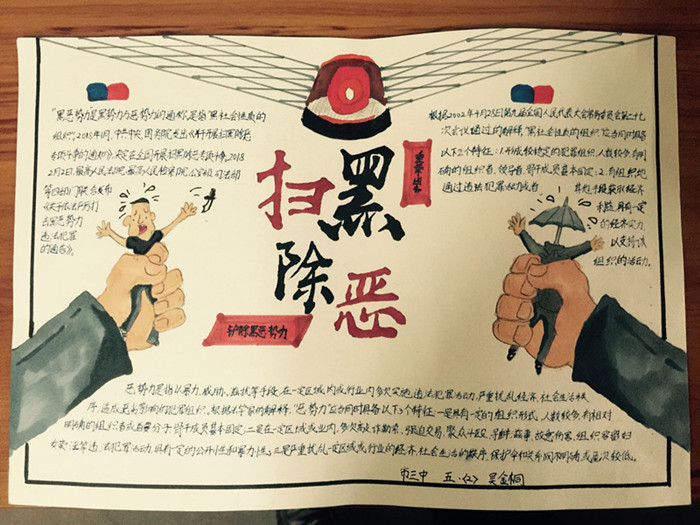 "黑恶势力"是黑势力与恶势力的通称,是指"黑社会性质的
组织",2018年1月,中共中央、国务院发出《关于开展扫黑除恶
专项斗争的通知》,决定在全国开展扫黑除恶专项斗争,2018
年2月2日,最高人民法院、最高人民检察院、公安部、司法部
等四部门联合发布
《关于依法严厉打
击黑恶势力
违法犯罪
的通告》。
扫黑
除恶
重拳出击
铲除黑恶势力
根据2002年4月28日第九届全国人民代表大会常务委员会第二十七
次会议通过的解释,"黑社会性质的组织"应当同时具备
以下2个特征:1.形成较稳定的犯罪组织,人数较多,有明
确的组织者、领导者,骨干成员基本固定;2.有组织地
通过违法犯罪活动或者
其他手段获取经济
利益,具有一定
的经济实力,
以支持该
组织的活动。
恶势力是指以暴力、威胁、滋扰等手段,在一定区域内或行业内多次实施违法犯罪活动,严重扰乱经济、社会生活秩
序,造成恶劣影响的犯罪组织。根据法学家的解释,"恶势力"应当同时具备以下3个特征:一是具有一定的组织形式,人数较多,有相对
明确的组织者或者骨干分子,骨干成员基本固定;二是在一定区域或行业内,多次敲诈勒索、强迫交易、聚众斗殴、寻衅滋事、故意伤害、组织容留妇
女卖淫等违法犯罪活动,具有一定的公开性和暴力性;三是严重扰乱一定区域或行业的经济、社会生活的秩序,保护伞和关系网不明确或层次较低。
市三中 五·<2> 吴金桐